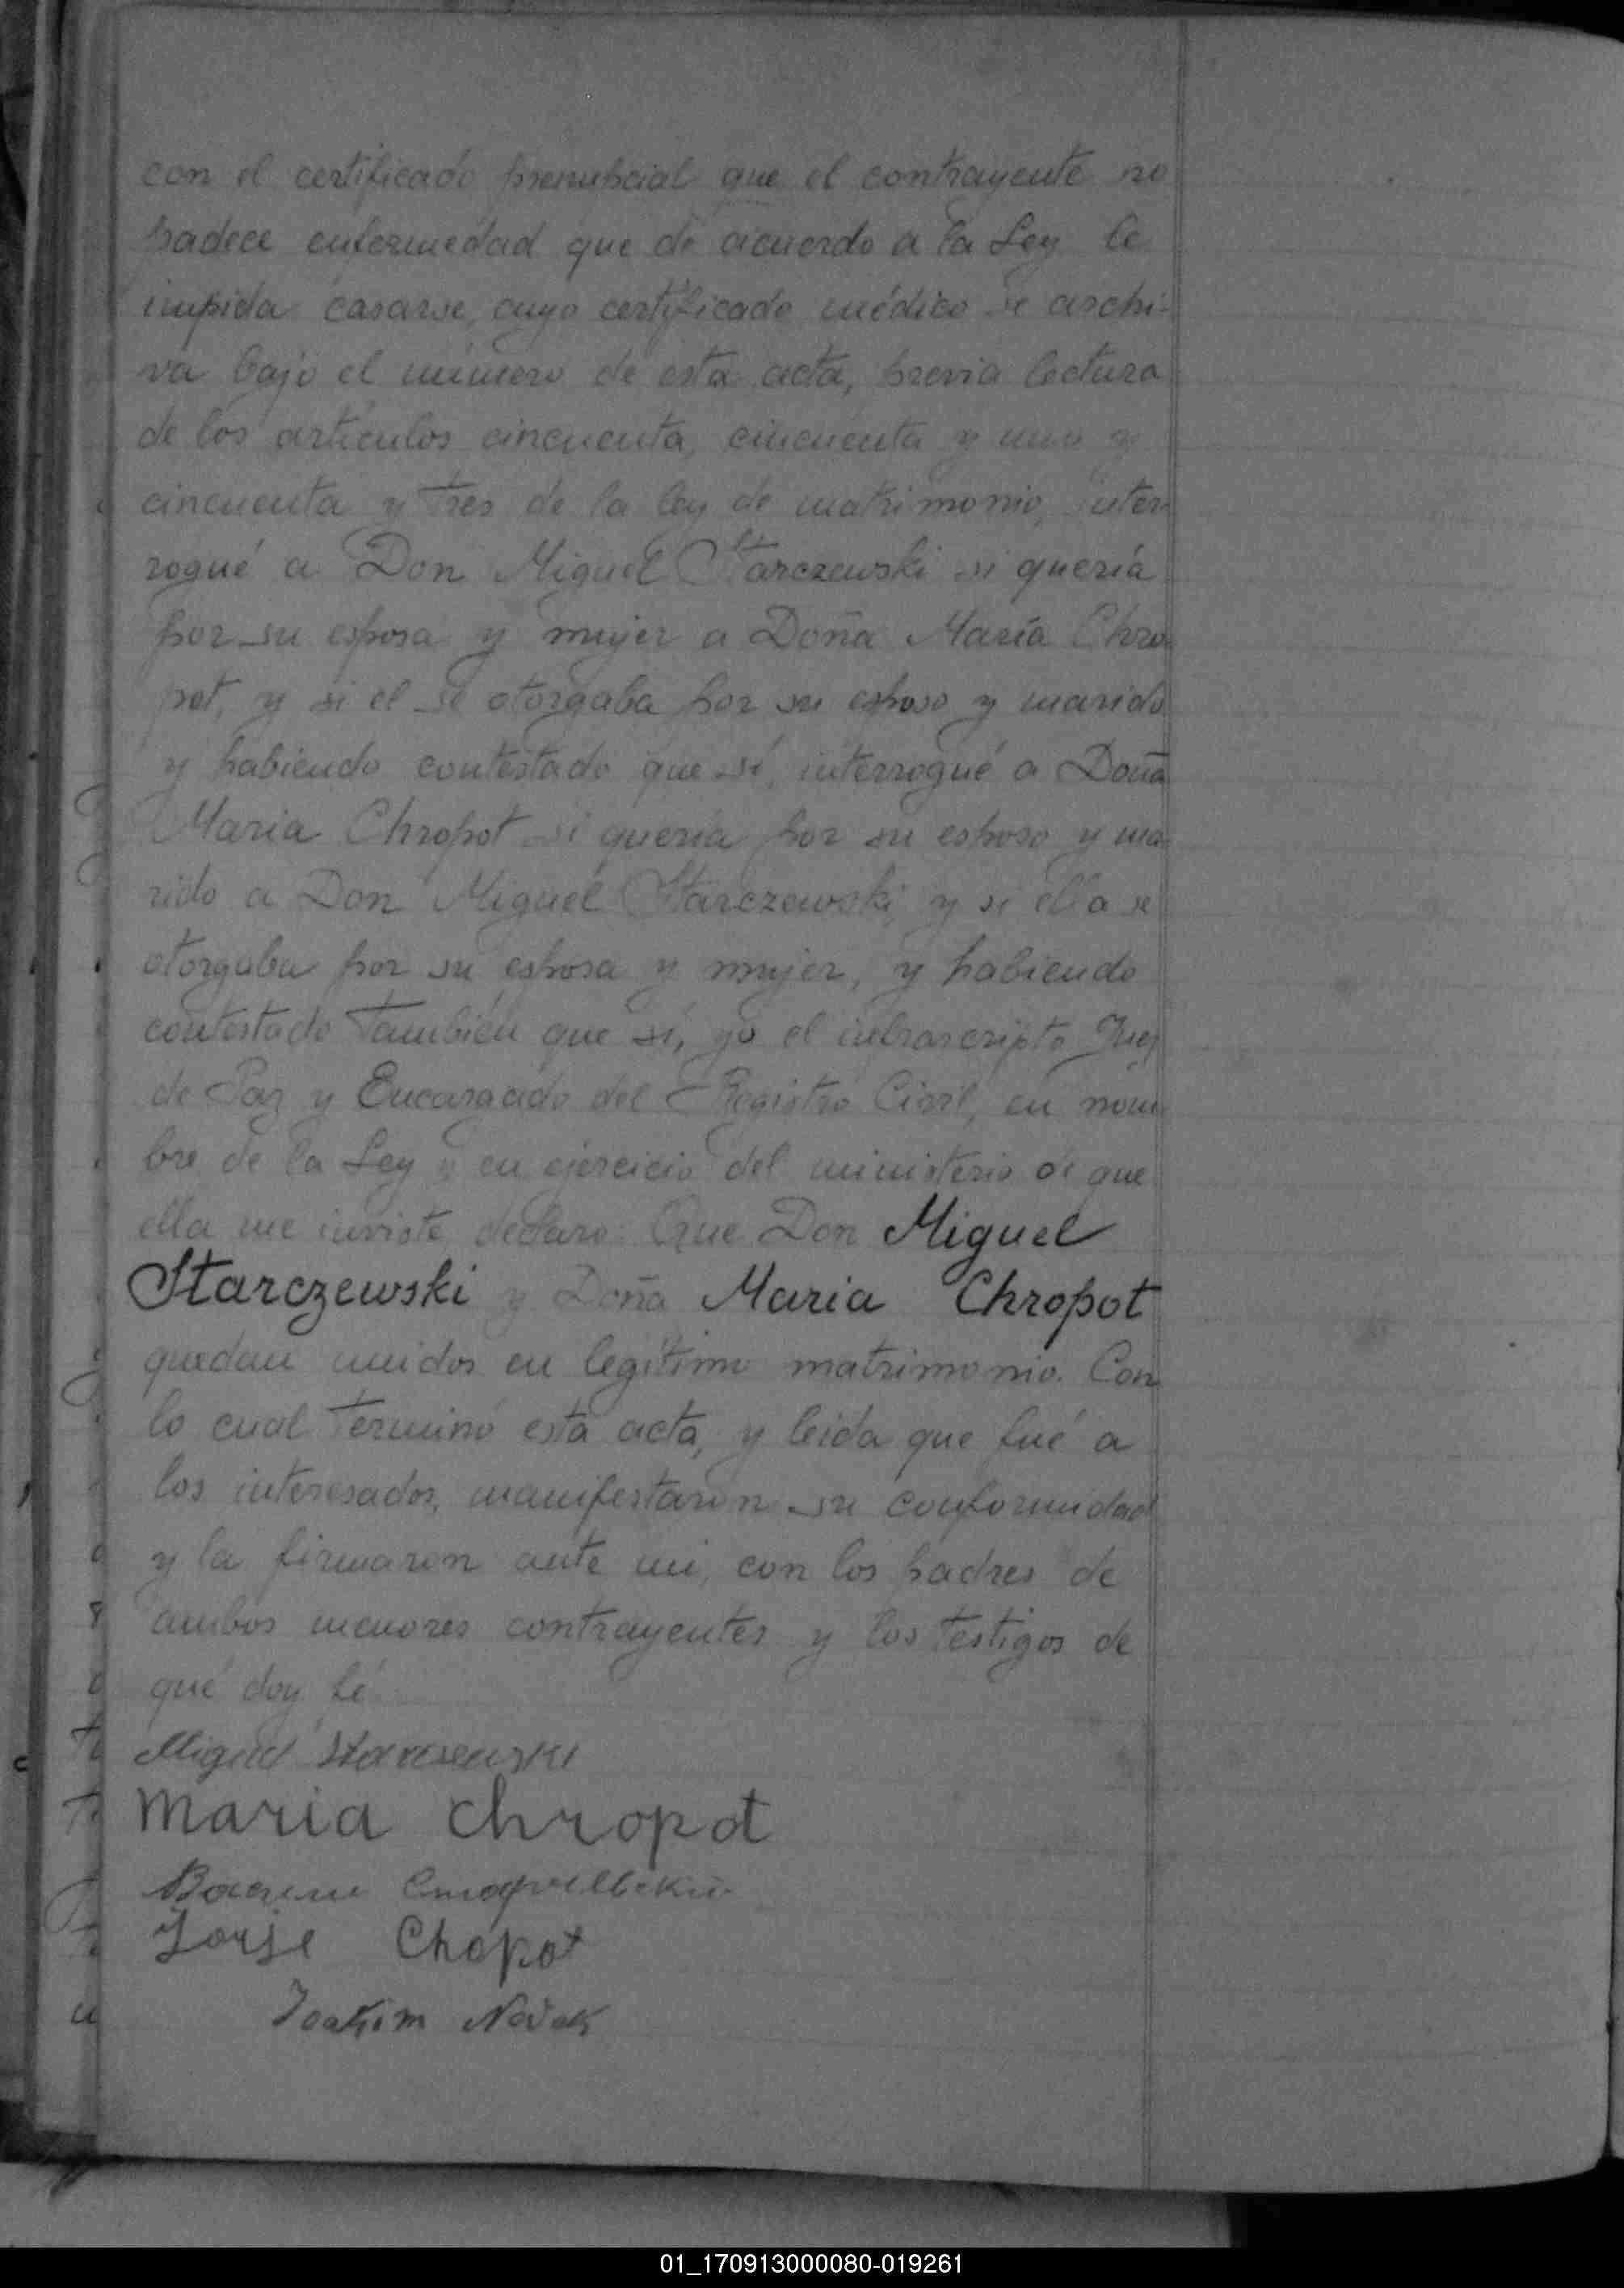 con el certificado prenupcial que el contrayente no
padece enfermedad que de acuerdo a la Ley le
impida casarse, cuyo certificado médico se archi-
va bajo el número de esta acta, previa lectura
de los artículos cincuenta, cincuenta y uno y
cincuenta y tres de la ley de matrimonio, inter-
rogué a Don Miguel Starczewski si quería
por su esposa y mujer a Doña María Chro-
pot, y si el se otorgaba por su esposo y marido
y habiendo contestado que sí, interrogué a Doña
Maria Chropot si quería por su esposo y ma-
rido a Don Miguel Starczewski, y si ella se
otorgaba por su esposa y mujer, y habiendo
contestado también que sí, yo el infrascripto Juez
de Paz y Encargado del Registro Civil, en nom-
bre de la Ley y en ejercicio del ministerio de que
ella me inviste, declaro: Que Don Miguel
Starczewski y Doña Maria Chropot
quedan unidos en legítimo matrimonio. Con
lo cual terminó esta acta, y leída que fué a
los interesados, manifestaron su conformidad
y la firmaron ante mi, con los padres de
ambos menores contrayentes y los testigos de
qué doy fé
Miguel Starczewski
maria chropot
Jorje Chopot
Joakim Novak
01_170913000080-019261